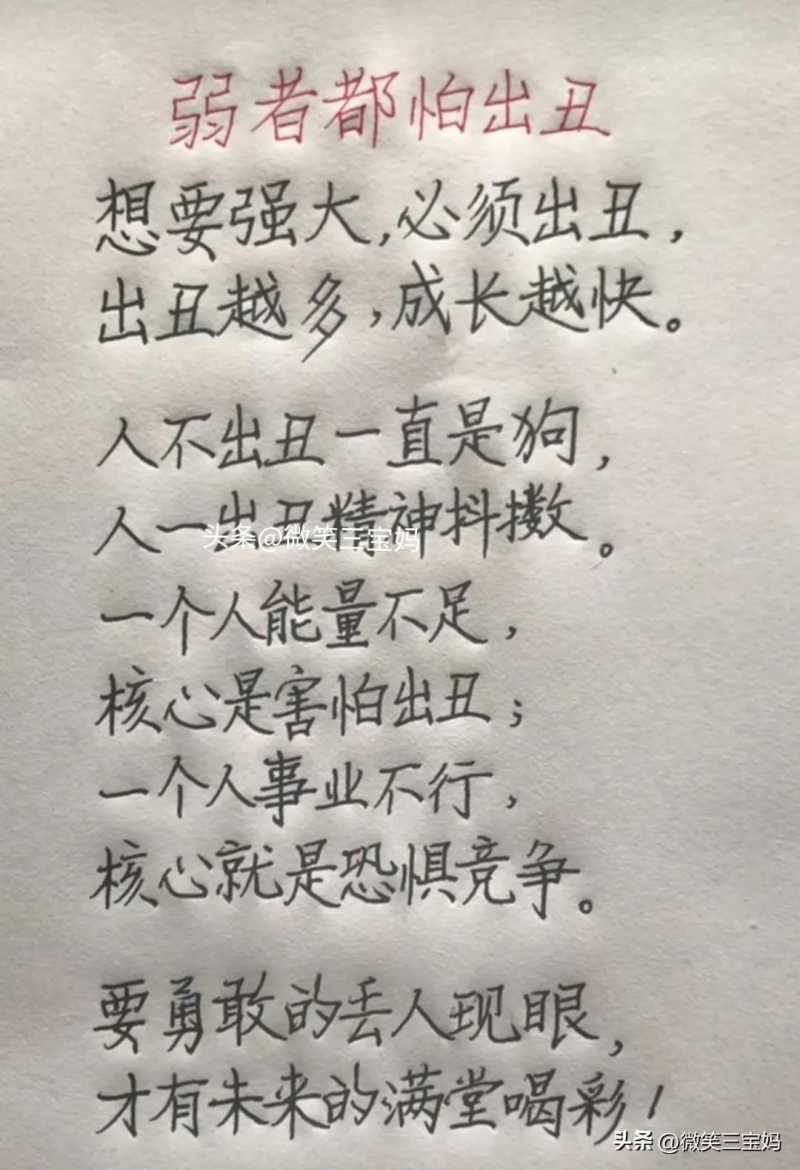 弱者都怕出丑
想要强大,必须出丑,
出丑越多,成长越快。
人不出丑一直是狗,
人一出丑精神抖擞。
头条@微笑三宝妈
一个人能量不足,
核心是害怕出丑;
一个人事业不行,
核心就是恐惧竞争。
要勇敢的丢人现眼,
才有未来的满堂喝彩!
头条 @微笑三宝妈